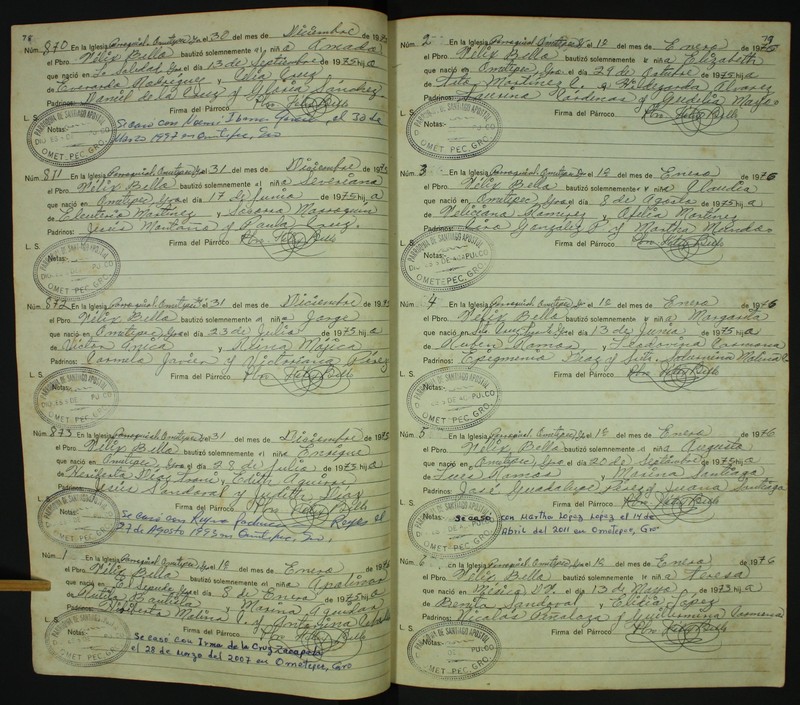 78
Núm. 870 En la Iglesia Parroquial Ometepec Gro. el 30 del mes de Diciembre de 1975
el Pbro. Félix Bello bautizó solemnemente al niño Amado
que nació en La Soledad Gro. el día 13 de Septiembre de 1975 hijo
de Everardo Rodriguez y Celia Cruz
Padrinos: Daniel de la Cruz y Gloria Sanchez
Firma del Párroco Pbro. Félix Bello
L. S.
PARROQUIA DE SANTIAGO APOSTOL
OMETEPEC, GRO.
Notas: Se caso con Noemi el 30 de
Marzo 1997 en Ometepec, Gro
Núm. 871 En la Iglesia Parroquial Ometepec Gro. el 31 del mes de Diciembre de 1975
el Pbro. Félix Bello bautizó solemnemente al niña Severiana
que nació en Ometepec Gro. el día 17 de Junio de 1975 hija
de Eleuteria Martinez y Marroquin
Padrinos: Jesus Montaño y Paula Cruz
Firma del Párroco Pbro. Félix Bello
L. S.
PARROQUIA DE SANTIAGO APOSTOL
ACAPULCO
OMETEPEC, GRO.
Notas:
Núm. 872 En la Iglesia Parroquial Ometepec Gro. el 31 del mes de Diciembre de 1975
el Pbro. Félix Bello bautizó solemnemente al niño Jorge
que nació en Ometepec Gro. el día 23 de Julio de 1975 hijo
de Victor Anica y Alina Mojica
Padrinos: Carmela Javier y Victoriana Pérez
Firma del Párroco Pbro. Félix Bello
L. S.
PARROQUIA DE SANTIAGO APOSTOL
OMETEPEC, GRO.
Notas:
Núm. 873 En la Iglesia Parroquial Ometepec Gro. el 31 del mes de Diciembre de 1975
el Pbro. Félix Bello bautizó solemnemente al niño Enrique
que nació en Ometepec, Gro. el día 28 de Julio de 1975 hijo
de y Edith Aguirre
Padrinos: Jesús Sandoval y Judith Diaz
Firma del Párroco Pbro. Félix Bello
L. S.
PARROQUIA DE SANTIAGO APOSTOL
OMETEPEC, GRO.
Notas: Se caso con Reyna Pacheco Reyes el
27 de Agosto 1995 en Ometepec, Gro.
Núm. 1 En la Iglesia Parroquial Ometepec Gro. el 1º del mes de Enero de 1976
el Pbro. Félix Bello bautizó solemnemente al niño Apolinar
que nació en Gro. el día 8 de Enero de 1975 hijo
de Bautista y Marina Aguilar
Padrinos: Molina C. y Antonina
Firma del Párroco Pbro. Félix Bello
L. S.
PARROQUIA DE SANTIAGO APOSTOL
OMETEPEC, GRO.
Notas: Se caso con Irma de la Cruz
el 28 de Marzo del 2007 en Ometepec, Gro
79
Núm. 2 En la Iglesia Parroquial Ometepec Gro. el 1º del mes de Enero de 1976
el Pbro. Félix Bello bautizó solemnemente al niña Elizabeth
que nació en Ometepec, Gro. el día 29 de Octubre de 1975 hija
de Martinez C. y Hildegarda Alvarez
Padrinos: Cardenas y Audelia Mayo
Firma del Párroco Pbro. Félix Bello
L. S.
PARROQUIA DE SANTIAGO APOSTOL
OMETEPEC, GRO.
Notas:
Núm. 3 En la Iglesia Parroquial Ometepec Gro. el 1º del mes de Enero de 1976
el Pbro. Félix Bello bautizó solemnemente al niña Claudia
que nació en Ometepec, Gro. el día 8 de Agosto de 1975 hija
de Feliciana Ramirez y Ofelia Martinez
Padrinos: Gonzalez P. y Martha
Firma del Párroco Pbro. Félix Bello
L. S.
PARROQUIA DE SANTIAGO APOSTOL
ACAPULCO
OMETEPEC, GRO.
Notas:
Núm. 4 En la Iglesia Parroquial Ometepec Gro. el 1º del mes de Enero de 1976
el Pbro. Félix Bello bautizó solemnemente al niña Margarita
que nació en Gro. el día 13 de Junio de 1975 hija
de Ruben Ramos y Carmona
Padrinos: Epigmenio Diaz y Molina
Firma del Párroco Pbro. Félix Bello
L. S.
PARROQUIA DE SANTIAGO APOSTOL
ACAPULCO
OMETEPEC, GRO.
Notas:
Núm. 5 En la Iglesia Parroquial Ometepec Gro. el 1º del mes de Enero de 1976
el Pbro. Félix Bello bautizó solemnemente al niño Augusto
que nació en Ometepec, Gro. el día 20 de Septiembre de 1975 hijo
de Luis Ramos y Marina Santiago
Padrinos: José Guadalupe y Susana Santiago
Firma del Párroco Pbro. Félix Bello
L. S.
PARROQUIA DE SANTIAGO APOSTOL
OMETEPEC, GRO.
Notas: Se caso con Martha Lopez Lopez el 14 de
Abril del 2011 en Ometepec, Gro
Núm. 6 En la Iglesia Parroquial Ometepec Gro. el 1º del mes de Enero de 1976
el Pbro. Félix Bello bautizó solemnemente al niña Teresa
que nació en México D.F. el día 13 de Mayo de 1973 hija
de Benito Sandoval y Elidia López
Padrinos: Nicolas Peñaloza y Guillermina Carmona
Firma del Párroco Pbro. Félix Bello
L. S.
PARROQUIA DE SANTIAGO APOSTOL
OMETEPEC, GRO.
Notas: